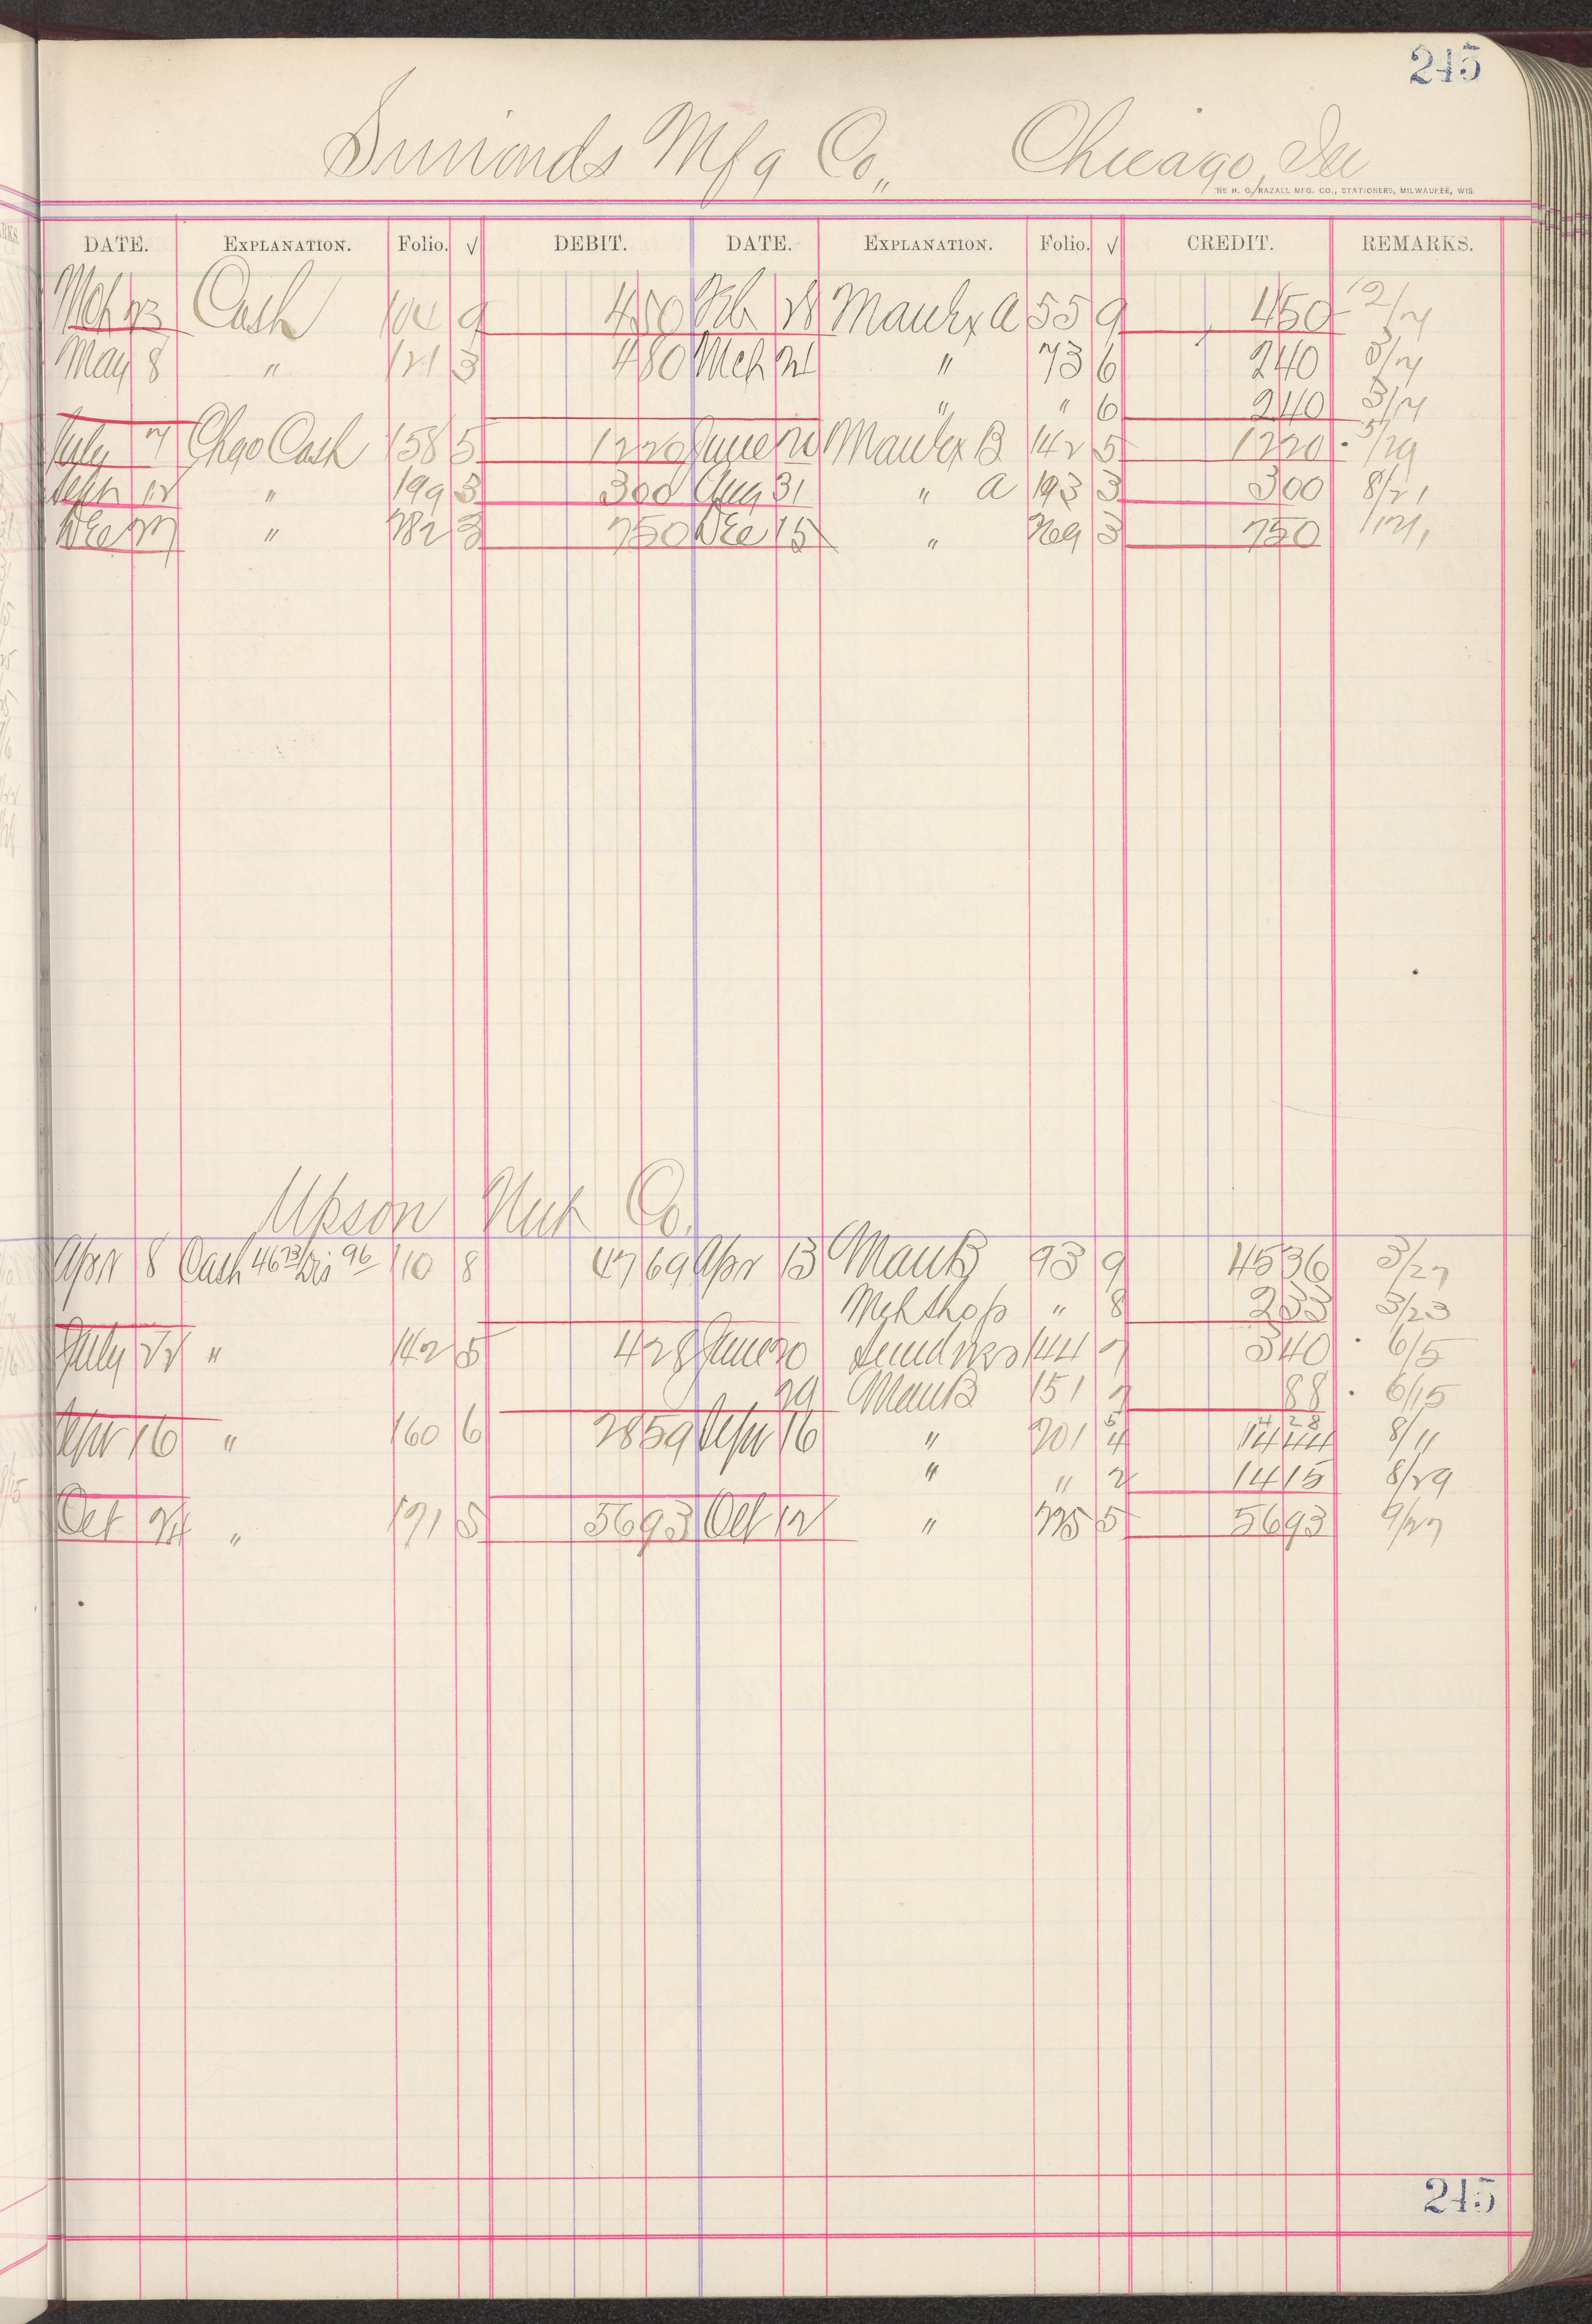 245
Simonds Mfg Co,, Chicago, Ill
THE H. G. RAZALL MFG. CO., STATIONERS, MILWAUKEE, WIS.
DATE. EXPLANATION. Folio. √ DEBIT. DATE. EXPLANATION. Folio. √ CREDIT. REMARKS.
Mch 23 Cash 104 9 450 Feb 28 A 55 9 450 2/
May 8 " 121 3 480 Mch 21 " 73 6 240 3/
" " 6 240 3/
July Chgo Cash 158 5 1220 June 20 B 142 5 1220 5/29
Sept 12 " 199 3 300 Aug 31 " A 193 3 300 8/21
Dec 27 " 282 3 750 Dec 15 " 269 3 750
Upson Nut Co.
Apr 8 Cash 4673 Dis 96 110 8 4769 Apr 13 Man B 93 9 4536 3/27
Mch Shop " 8 233 3/23
July 22 " 142 5 428 June 20 Sundries 144 7 340 6/5
29 Man B 151 2 88 6/15
16 " 160 6 2859 16 " 201 4 1444 8/11
" " 2 1415 8/29
Oct 24 " 191 5 5693 Oct 12 " 225 5 5693 9/27
245